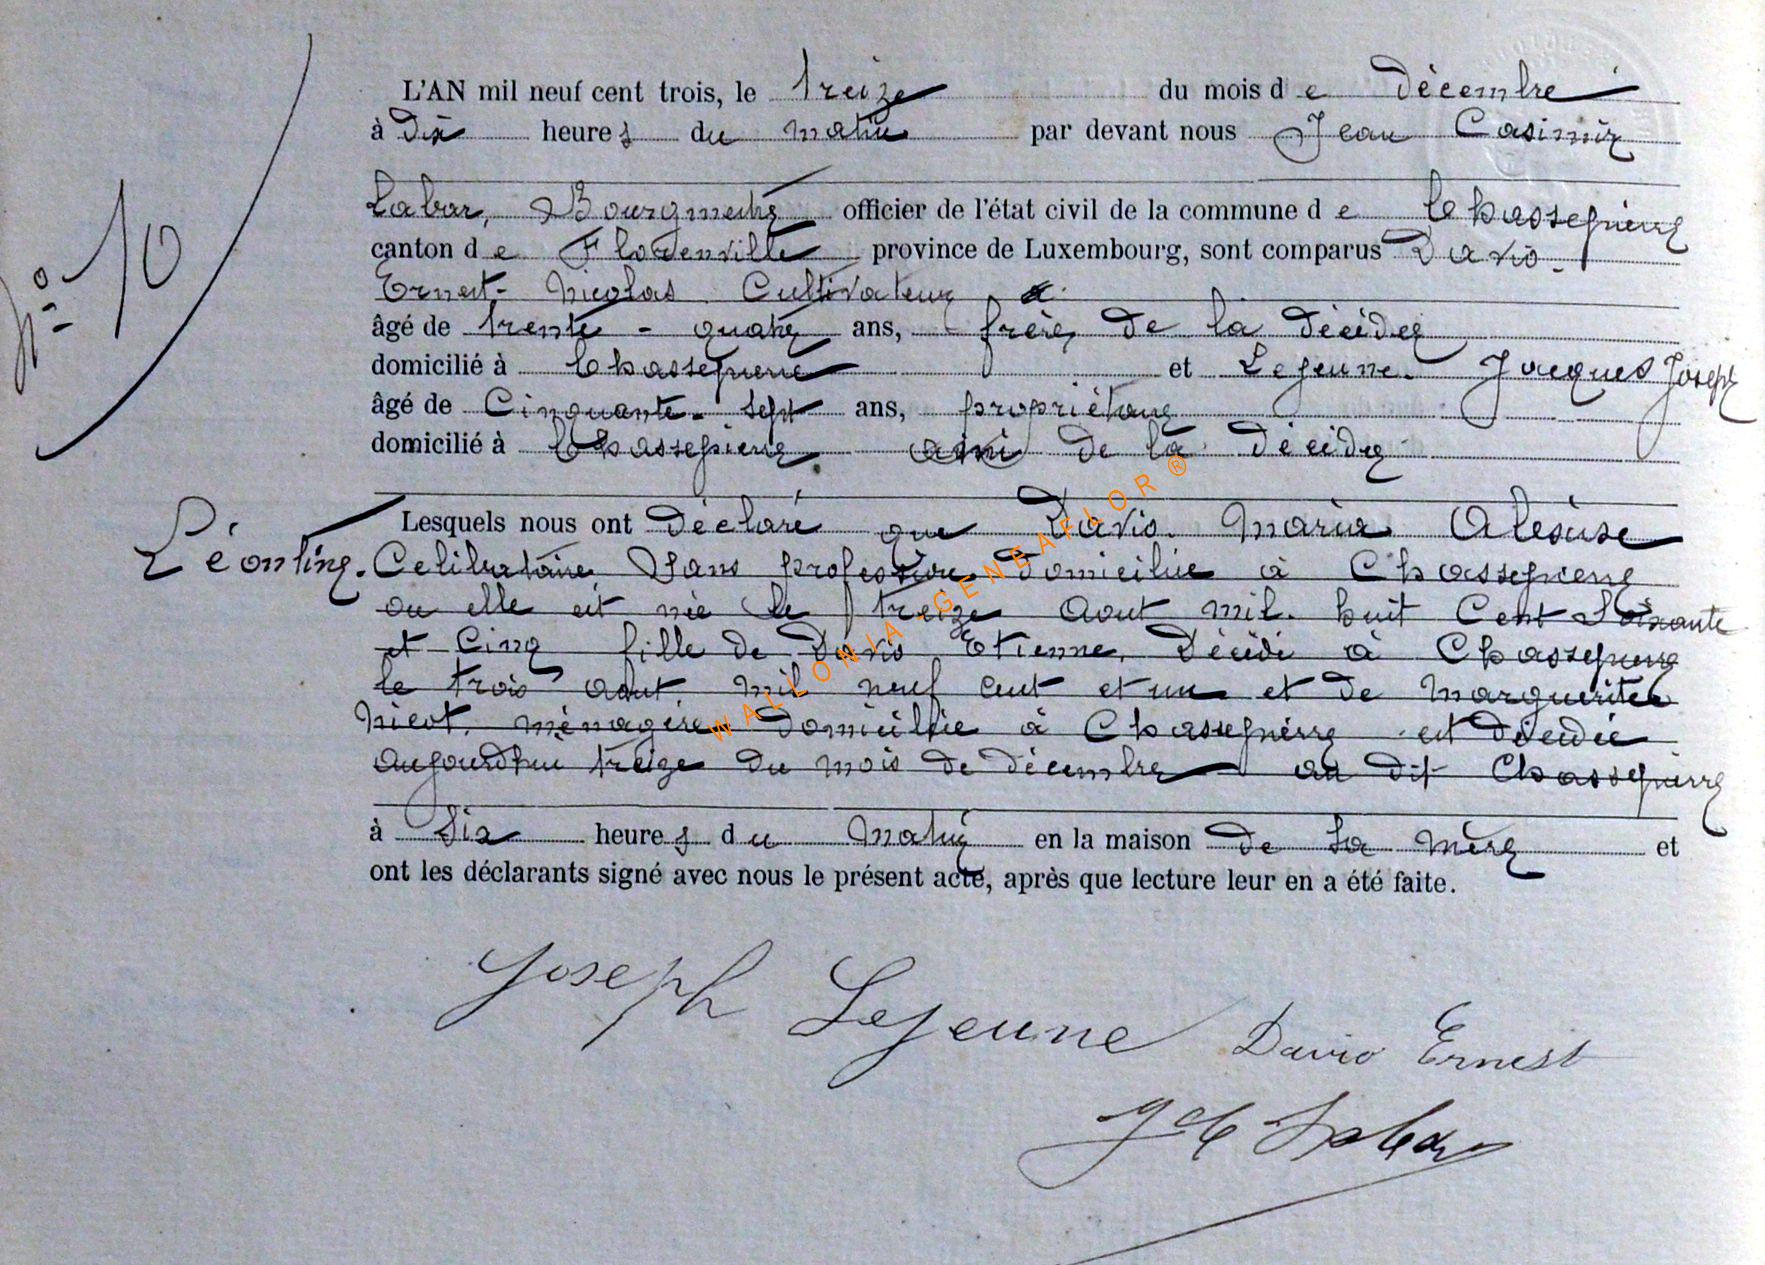 N° 10
L'AN mil neuf cent trois, le treize du mois de décembre
à dix heures du matin par devant nous Jean Casimir
Labar, Bourgmestre officier de l'état civil de la commune de Chassepierre
canton de Florenville province de Luxembourg, sont comparus Davio
Ernest-Nicolas Cultivateur
âgé de trente-quatre ans, frère de la décédée
domicilié à Chassepierre et Lejeune Jacques Joseph
âgé de Cinquante-sept ans, propriétaire
domicilié à Chassepierre ami de la décédée
Lesquels nous ont déclaré que Davio Maria
Léontine. Celibataire Sans profession domiciliée à Chassepierre
ou elle est née le treize Aout mil huit Cent Soixante
et Cinq fille de Davio Etienne, Décédé à Chassepierre
le trois aout mil neuf cent et un et de Marguerite
Nicot, ménagère domiciliée à Chassepierre est décédée
aujourdhui treize du mois de décembre au dit Chassepierre
à heures du Matin en la maison de sa mère et
ont les déclarants signé avec nous le présent acte, après que lecture leur en a été faite.
Joseph Lejeune Davio Ernest
JC Labar
WALLONIA-GENEAFLOR®